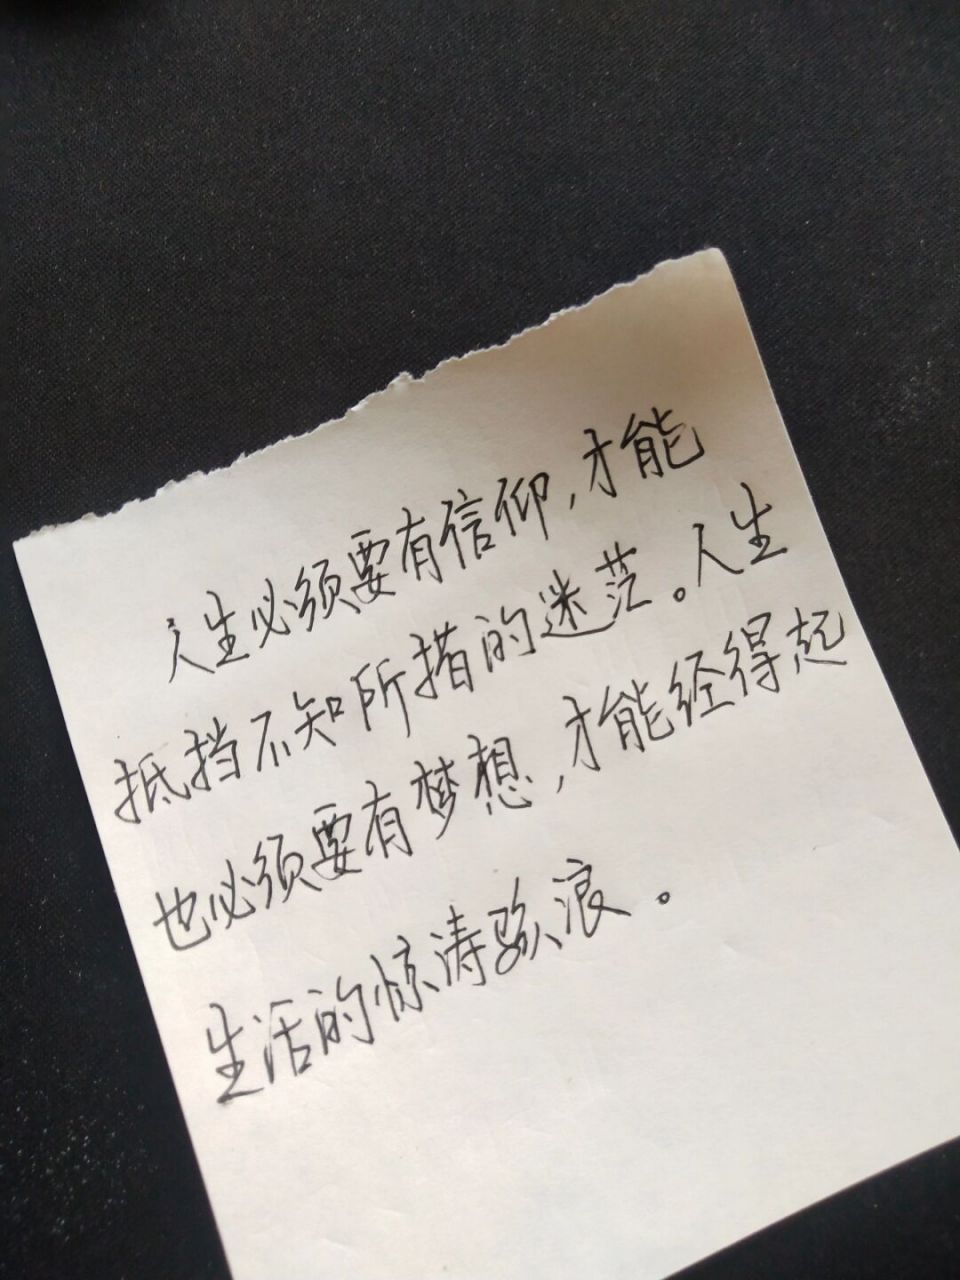 人生必须要有信仰,才能
抵挡不知所措的迷茫。人生
也必须要有梦想,才能经得起
生活的惊涛骇浪。